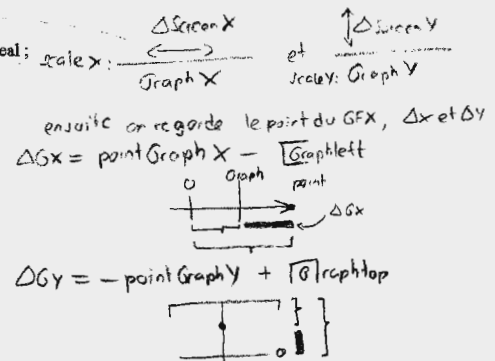 ΔScreenX
ΔScreenY
eal; scaleX: GraphX et scaleY: GraphY
ensuite on regarde le point du GFX, Δx et ΔY
ΔGX = pointGraphX - Graphleft
0 Graph point
ΔGX
ΔGY = -pointGraphY + Graphtop
0